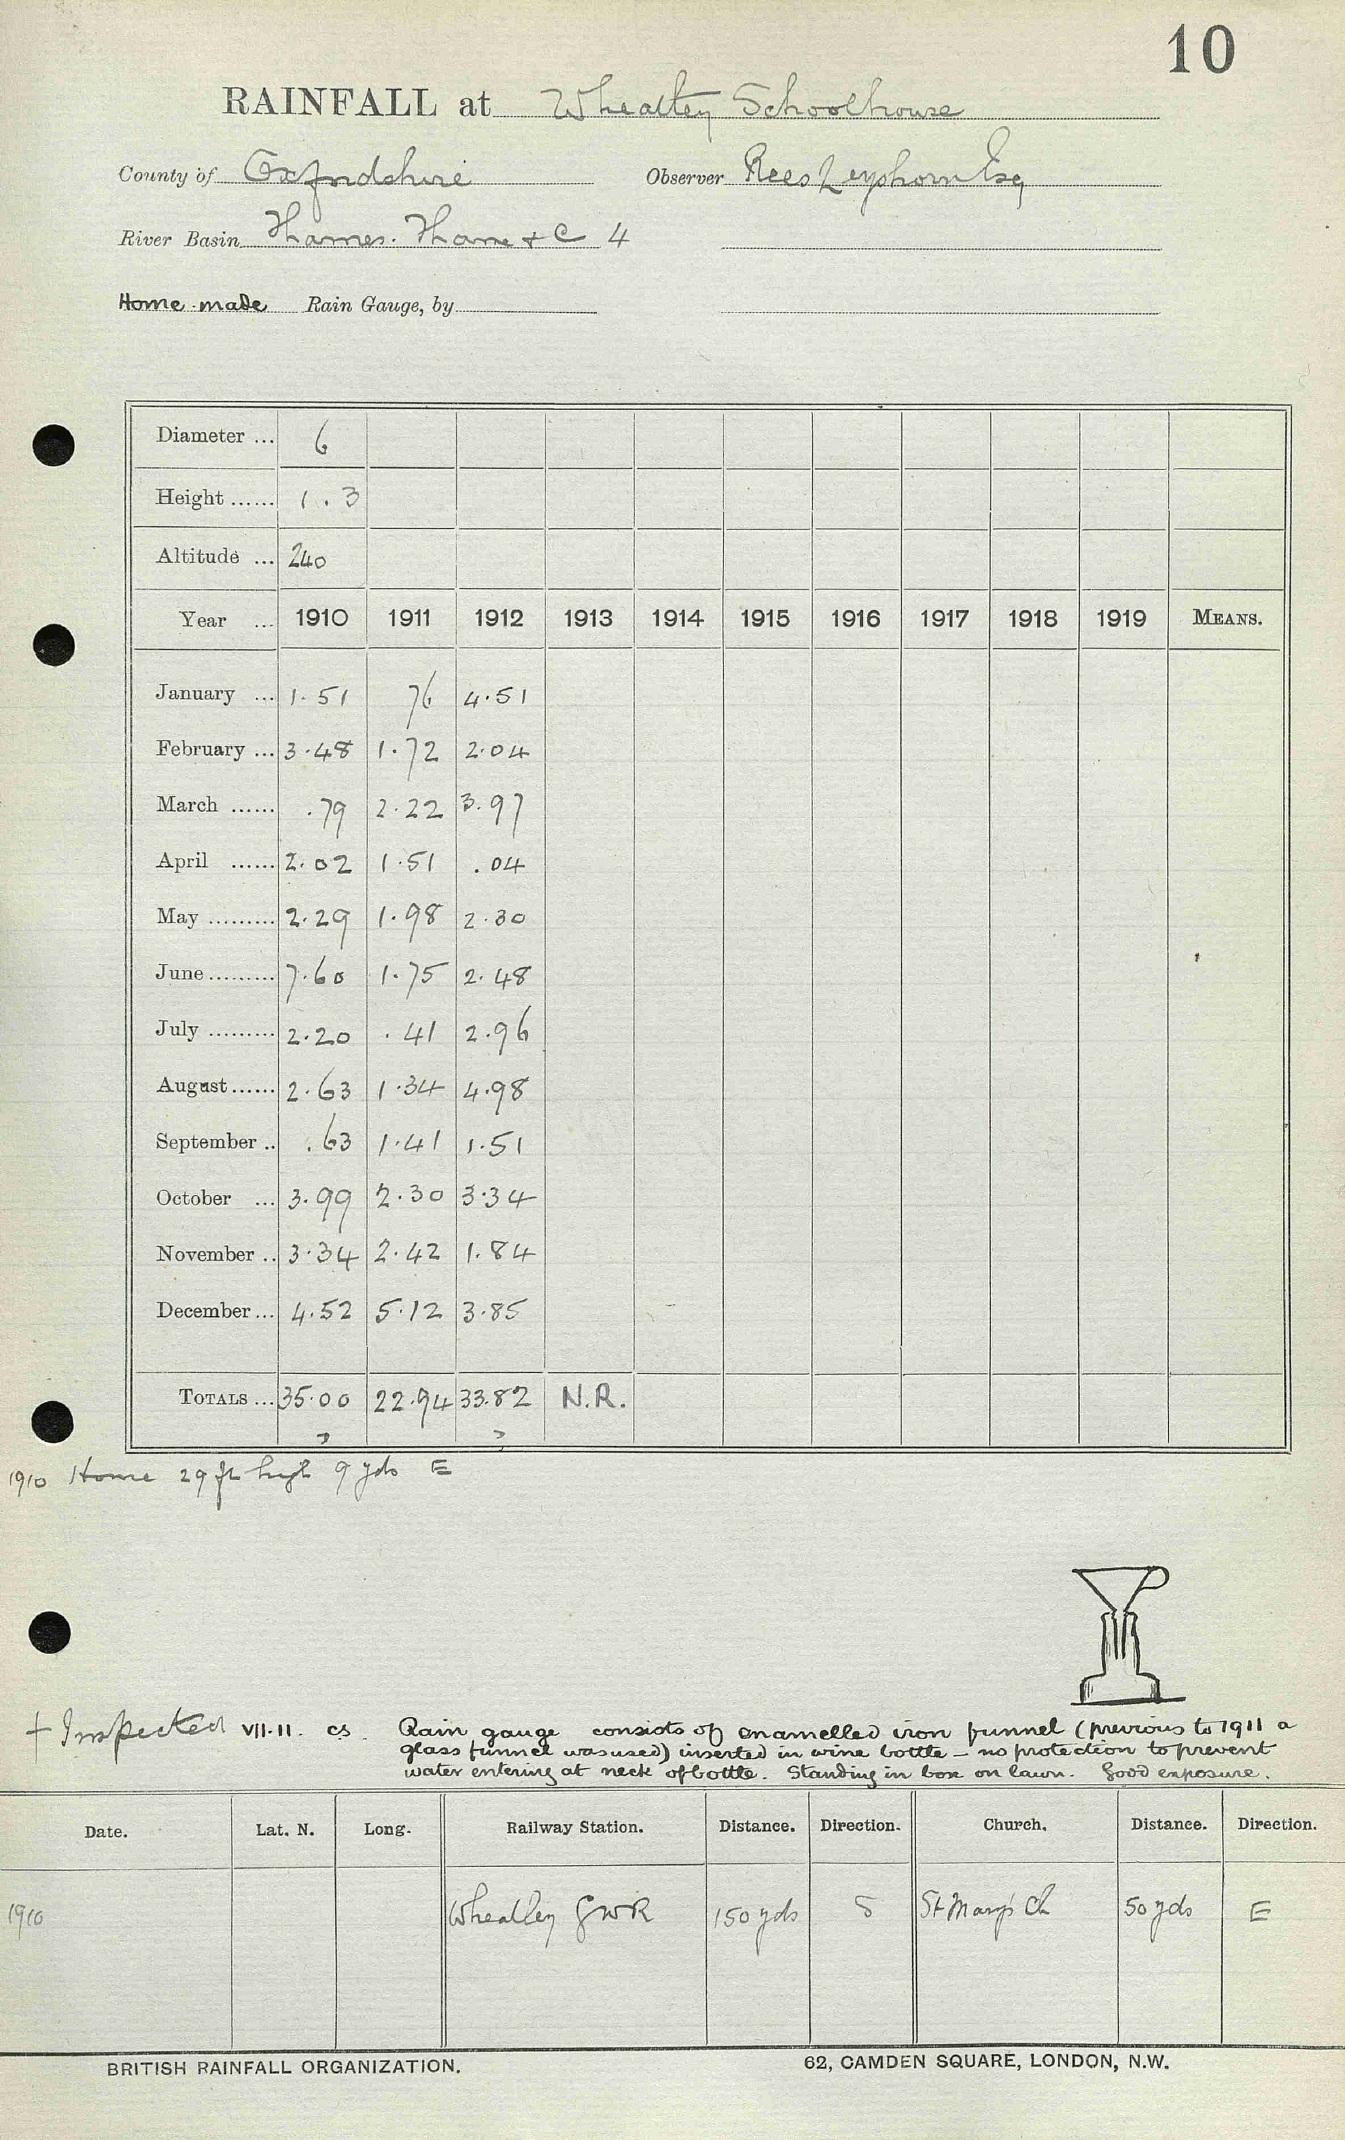 10
RAINFALL at Wheatley Schoolhouse
County of Oxfordshire Observer Rees Leyshorn Esq
River Basin Thames. Thame + C 4
Home-made Rain Gauge, by
Diameter ... 6
Height ...... 1.3
Altitude ... 240
Year ... 1910 1911 1912 1913 1914 1915 1916 1917 1918 1919 MEANS.
January ... 1.51 76 4.51
February ... 3.48 1.72 2.04
March ...... .79 2.22 3.97
April ...... 2.02 1.51 .04
May ......... 2.29 1.98 2.30
June ......... 7.60 1.75 2.48
July ......... 2.20 .41 2.96
August ...... 2.63 1.34 4.98
September .. .63 1.41 1.51
October ... 3.99 2.30 3.34
November .. 3.34 2.42 1.84
December ... 4.52 5.12 3.85
TOTALS ... 35.00 22.94 33.82 N.R.
1910 Home 29 ft high 9 yds E
+ Inspected VII.11. cs. Rain gauge consists of enamelled iron funnel (previous to 1911 a
glass funnel was used) inserted in wine bottle - no protection to prevent
water entering at neck of bottle. Standing in box on lawn. Good exposure.
Date. Lat. N. Long. Railway Station. Distance. Direction. Church. Distance. Direction.
1910 Wheatley GWR 150 yds S St Mary's Ch 50 yds E
BRITISH RAINFALL ORGANIZATION. 62, CAMDEN SQUARE, LONDON, N.W.